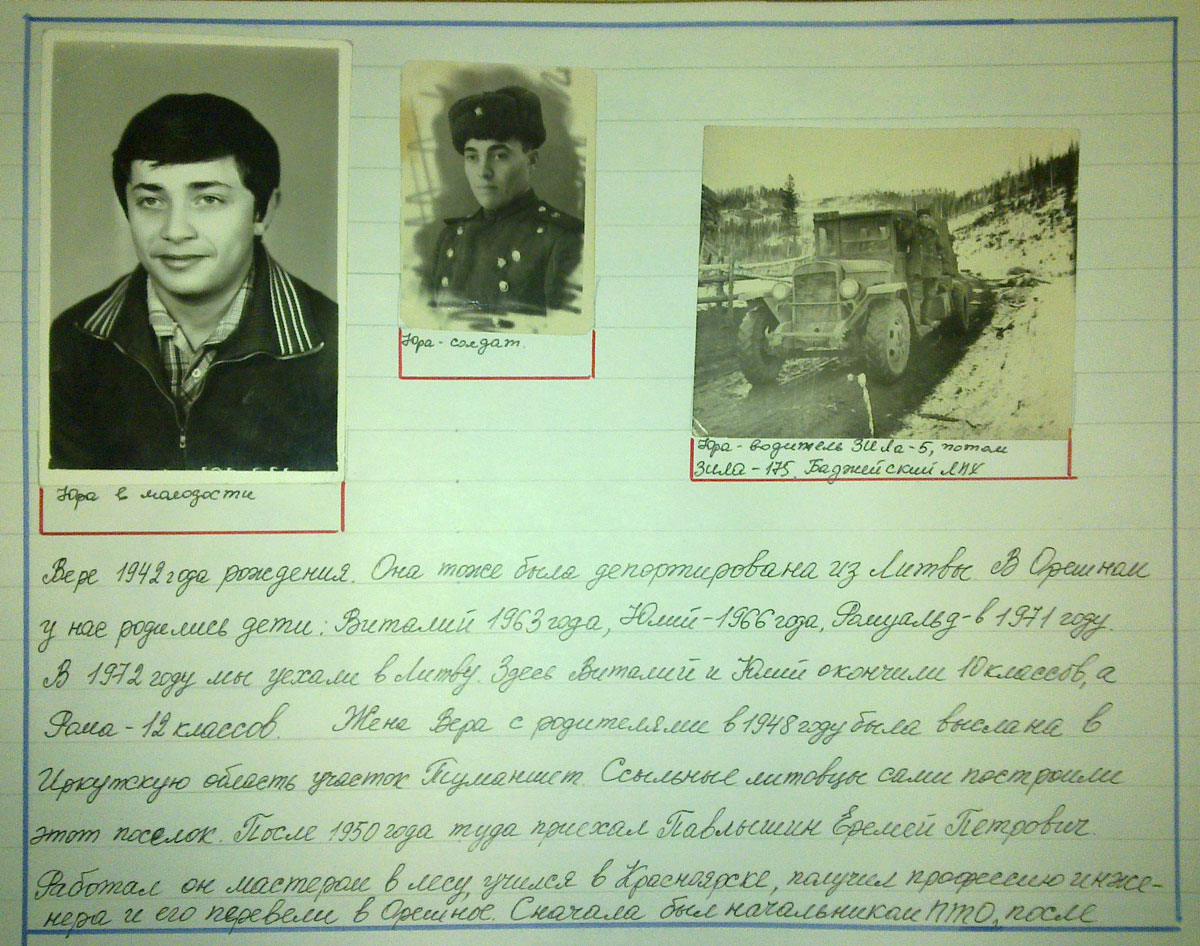 Юра в молодости
Юра - солдат.
Юра - водитель ЗИЛа-5, потом
ЗИЛа - 175. Баджейский ЛПХ
Вере 1942 года рождения. Она тоже была депортирована из Литвы. В Орешном
у нас родились дети: Виталий 1963 года, Юлий - 1966 года, Ромуальд - в 1971 году.
В 1972 году мы уехали в Литву. Здесь Виталий и Юлий окончили 10 классов, а
Рома - 12 классов. Жена Вера с родителями в 1948 году была выслана в
Иркутскую область участок Туманшет. Ссыльные литовцы сами построили
этот поселок. После 1950 года туда приехал Павлышин Еремей Петрович.
Работал он мастером в лесу, учился в Красноярске, получил профессию инже-
нера и его перевели в Орешное. Сначала был начальником ПТО, после